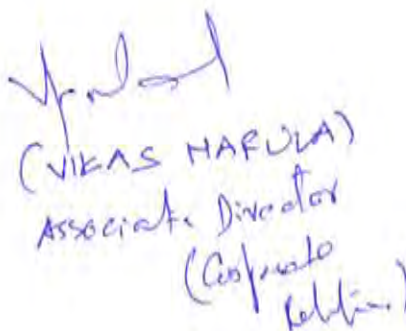 (VIKAS NARULA)
Associate Director
(Corporate
Relations)